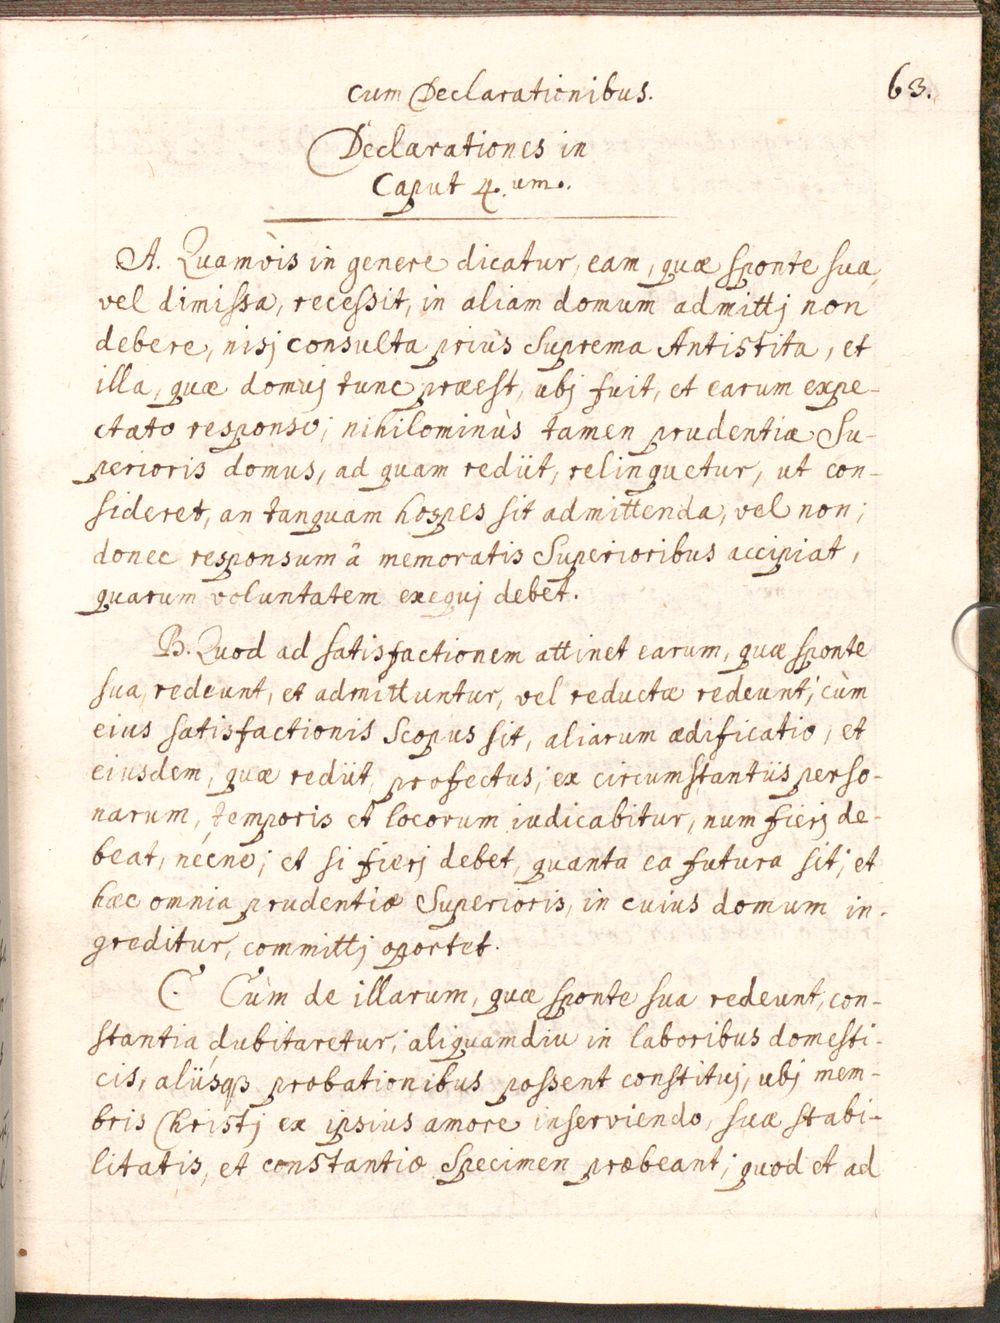 cum Declarationibus.
63.
Declarationes in
Caput 4.um.
A. Quamvis in genere dicatur, eam, quæ sponte sua,
vel dimissa, recessit, in aliam domum admittj non
debere, nisj consulta priùs Suprema Antistita, et
illa, quæ domuj tunc præest, ubj fuit, et earum expe-
ctato responso; nihilominùs tamen prudentiæ Su-
perioris domus, ad quam rediit, relinquetur, ut con-
sideret, an tanquam hospes sit admittenda, vel non;
donec responsum â memoratis Superioribus accipiat,
quarum voluntatem exequj debet.
B. Quod ad satisfactionem attinet earum, quæ sponte
sua, redeunt, et admittuntur, vel reductæ redeunt; cùm
eius satisfactionis Scopus sit, aliarum ædificatio, et
eiusdem, quæ rediit, profectus; ex circumstantiis perso-
narum, temporis et locorum iudicabitur, num fierj de-
beat, nécne; et si fierj debet, quanta ea futura sit; et
hæc omnia prudentiæ Superioris, in cuius domum in-
greditur, committj oportet.
C. Cùm de illarum, quæ sponte sua redeunt, con-
stantia dubitaretur; aliquamdiu in laboribus domesti-
cis, aliisqꝫ probationibus possent constituj, ubj mem-
bris Christj ex ipsius amore inserviendo, suæ stabi-
litatis, et constantiæ Specimen præbeant; quod et ad